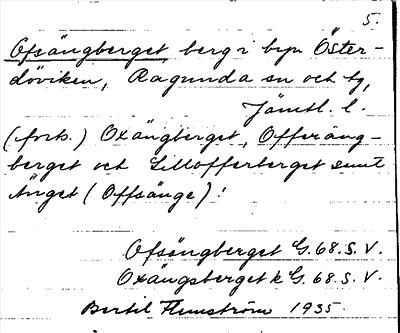 5.
Ofsångberget, berg i byn Öster-
döviken, Ragunda sn och tg,
Jämtl. l.
(forts.) Oxångberget, Offerång-
berget och Lillofferberget samt
Ånget (Offsånge)!
Ofsångberget G. 68. S. V.
Oxångsberget k G. 68. S. V.
Bertil Flemström 1935.